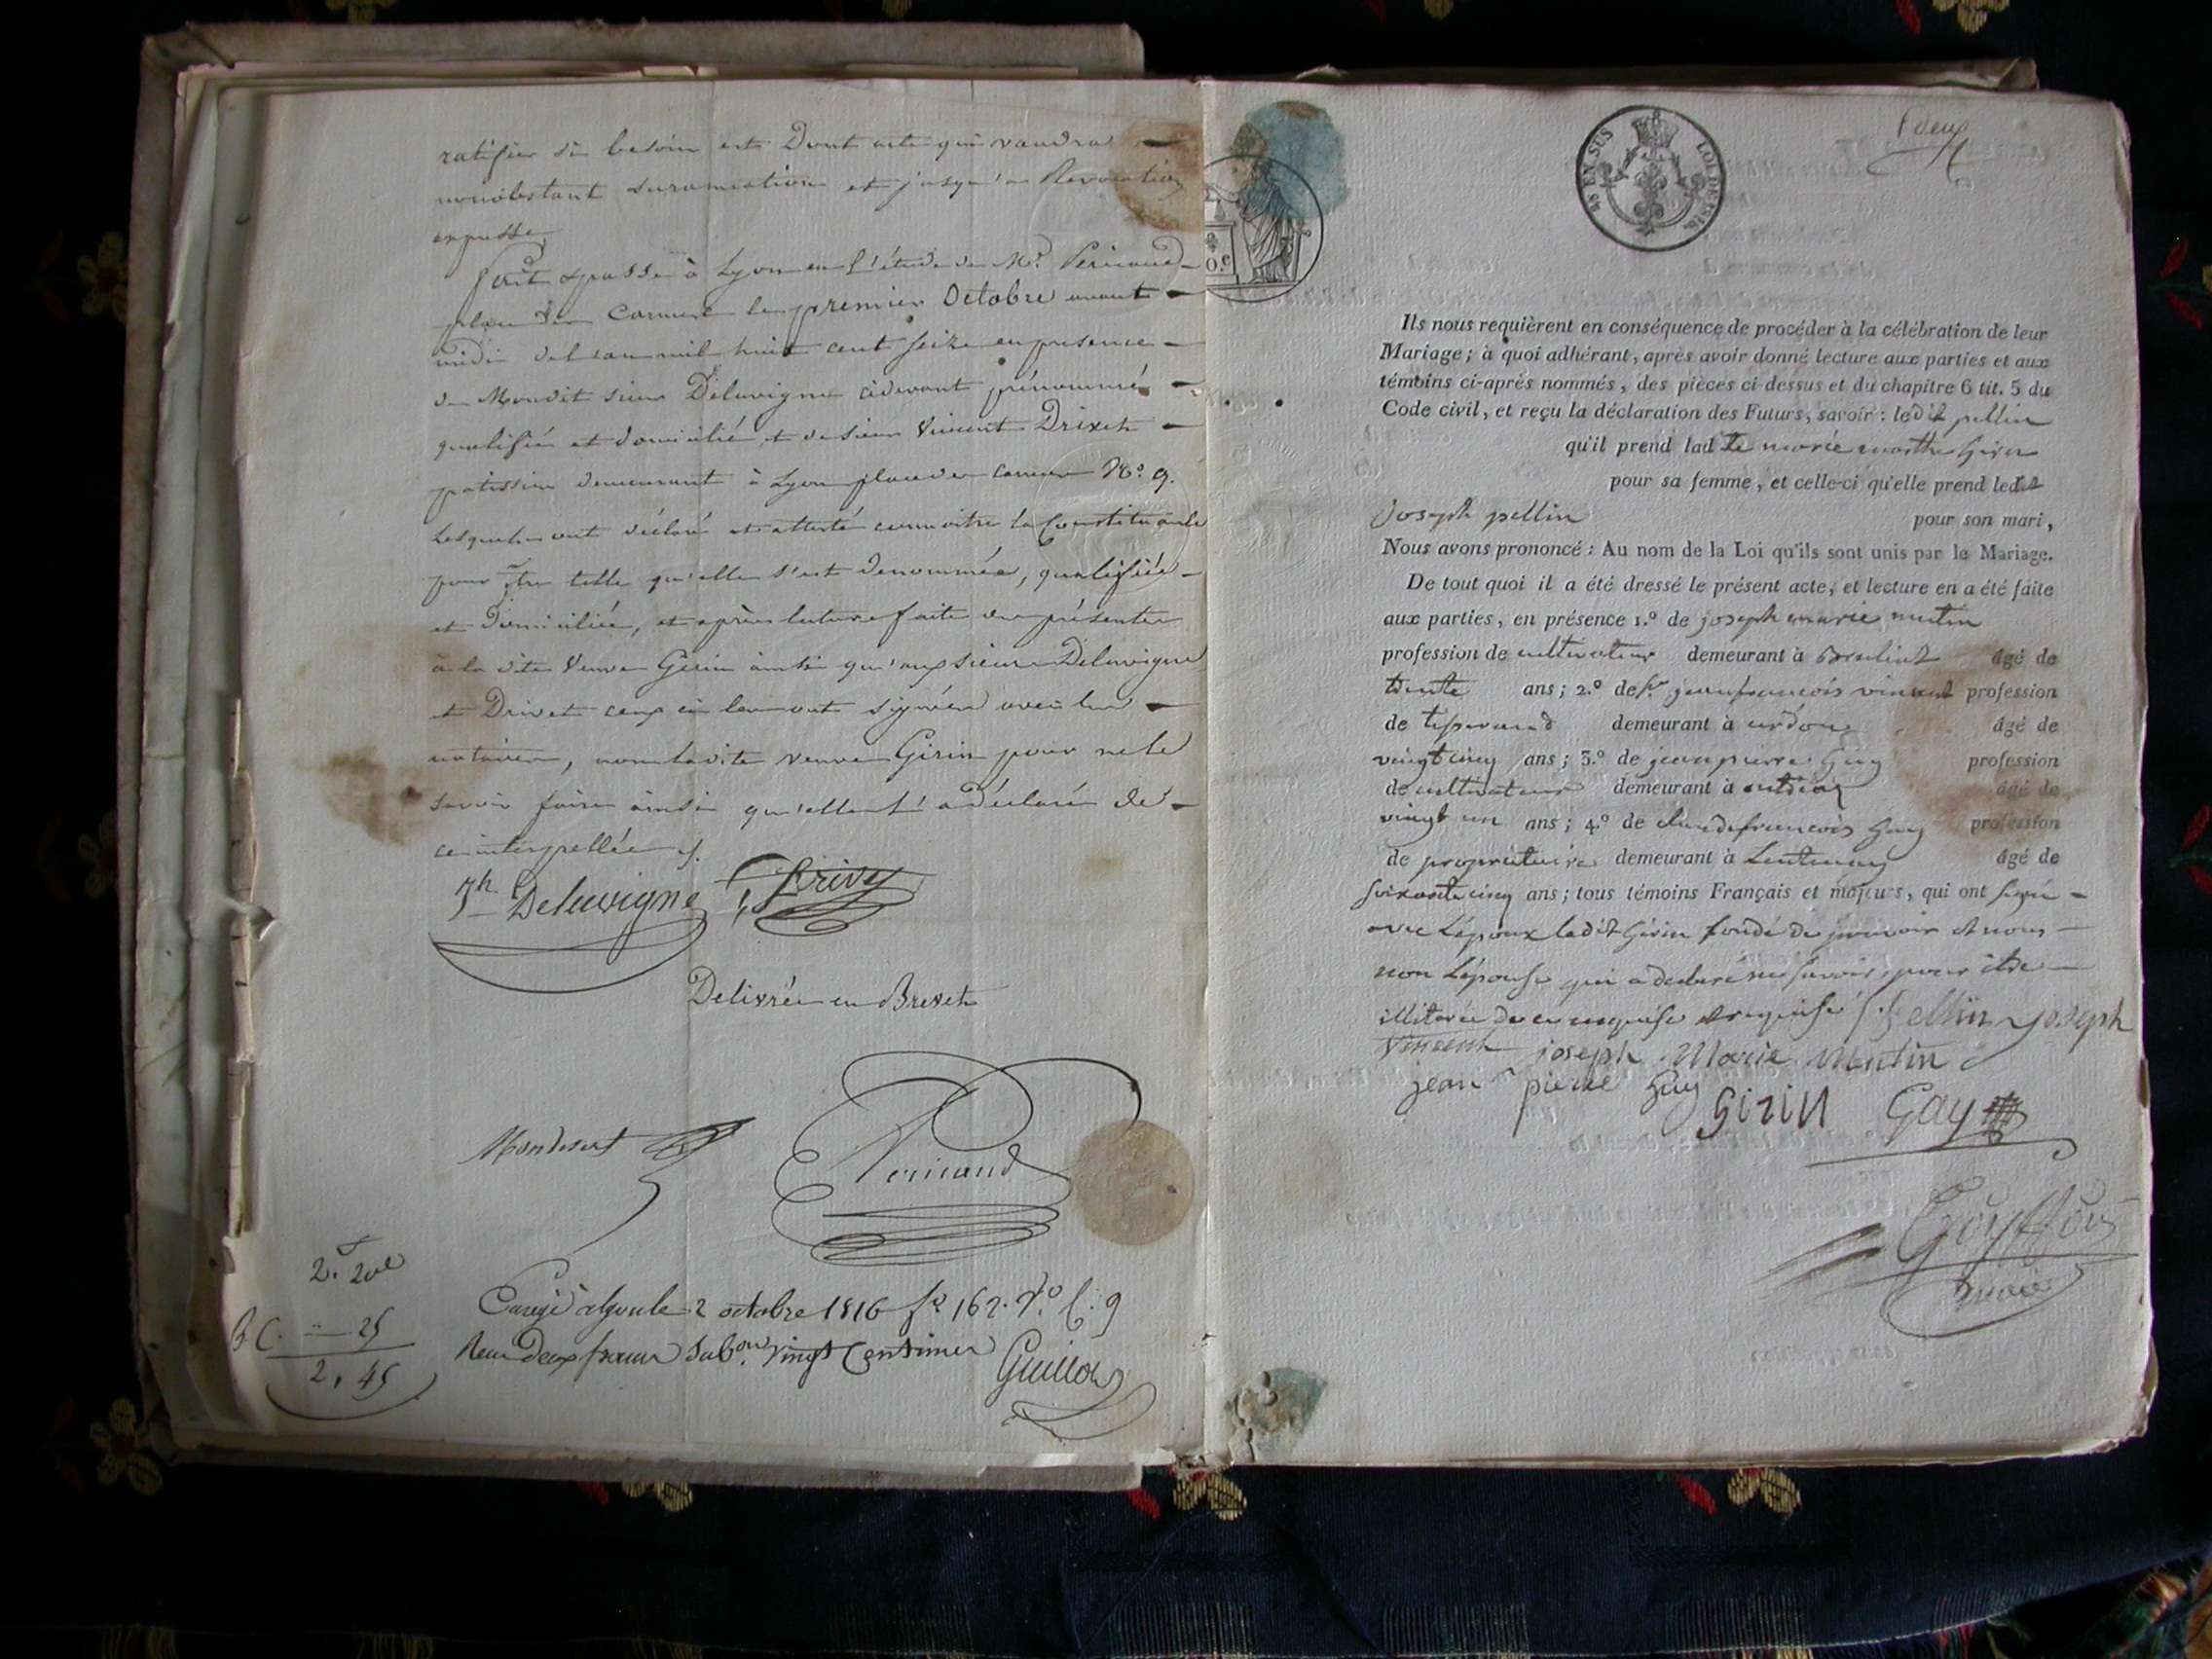 ratifier si besoin est Dont acte qui vaudra
nonobstant surannation et jusqu'a Revocation
expresse
fait & passé à Lyon en l'étude de Me. Pericaud
place des Carmes le premier Octobre avant
midi de l'an mil huit cent seize en presence
de Mondit sieur Deluvigne cidevant prénommé
qualifié et domicilié et de sieur Vincent Drivet
patissier demeurant à Lyon place des Carmes No. 9.
Lesquels ont déclaré et attesté connoitre la Constituante
pour être telle qu'elle s'est denommée, qualifiée
et Domiciliée, et après lecture faite des présentes
à la dite Veuve Girin ainsi qu'aux sieurs Deluvigne
et Drivet ceux ci les ont signées avec les
notaires, non ladite veuve Girin pour ne le
savoir faire ainsi qu'elle l'a déclaré de
ce interpellée
Jh Deluvigne Drivet
Delivrée en Brevet
Pericaud
2. 20c
B. C. 25
2, 45
2 octobre 1816 fo 162. Vo. C. 9
Reçu Deux francs Subon. Vingt Centimes
Guillot
f deux
EN SUS LOI DE 1816
0.c
Ils nous requièrent en conséquence de procéder à la célébration de leur
Mariage; à quoi adhérant, après avoir donné lecture aux parties et aux
témoins ci-après nommés, des pièces ci-dessus et du chapitre 6 tit. 5 du
Code civil, et reçu la déclaration des Futurs, savoir: ledit pellin
qu'il prend lad te marie marthe Girin
pour sa femme, et celle-ci qu'elle prend ledit
joseph pellin pour son mari,
Nous avons prononcé: Au nom de la Loi qu'ils sont unis par le Mariage.
De tout quoi il a été dressé le présent acte, et lecture en a été faite
aux parties, en présence 1.º de joseph marie mutin
profession de cultivateur demeurant à âgé de
trente ans; 2.º de sr jean françois vincent profession
de tisserand demeurant à âgé de
vingt cinq ans; 3.º de jean pierre Guy profession
de cultivateur demeurant à âgé de
vingt un ans; 4.º de claude francois Gay profession
de propriétaire demeurant à Lentenay âgé de
soixante cinq ans; tous témoins Français et majeurs, qui ont signé
avec Lépoux ledit Girin fondé de pouvoir et nous
non Lépouse qui a déclaré ne savoir pour être
illiterée de ce enquise et requise Pellin joseph
Vincent joseph Marie Mutin
jean pierre Guy Girin Gay
maire